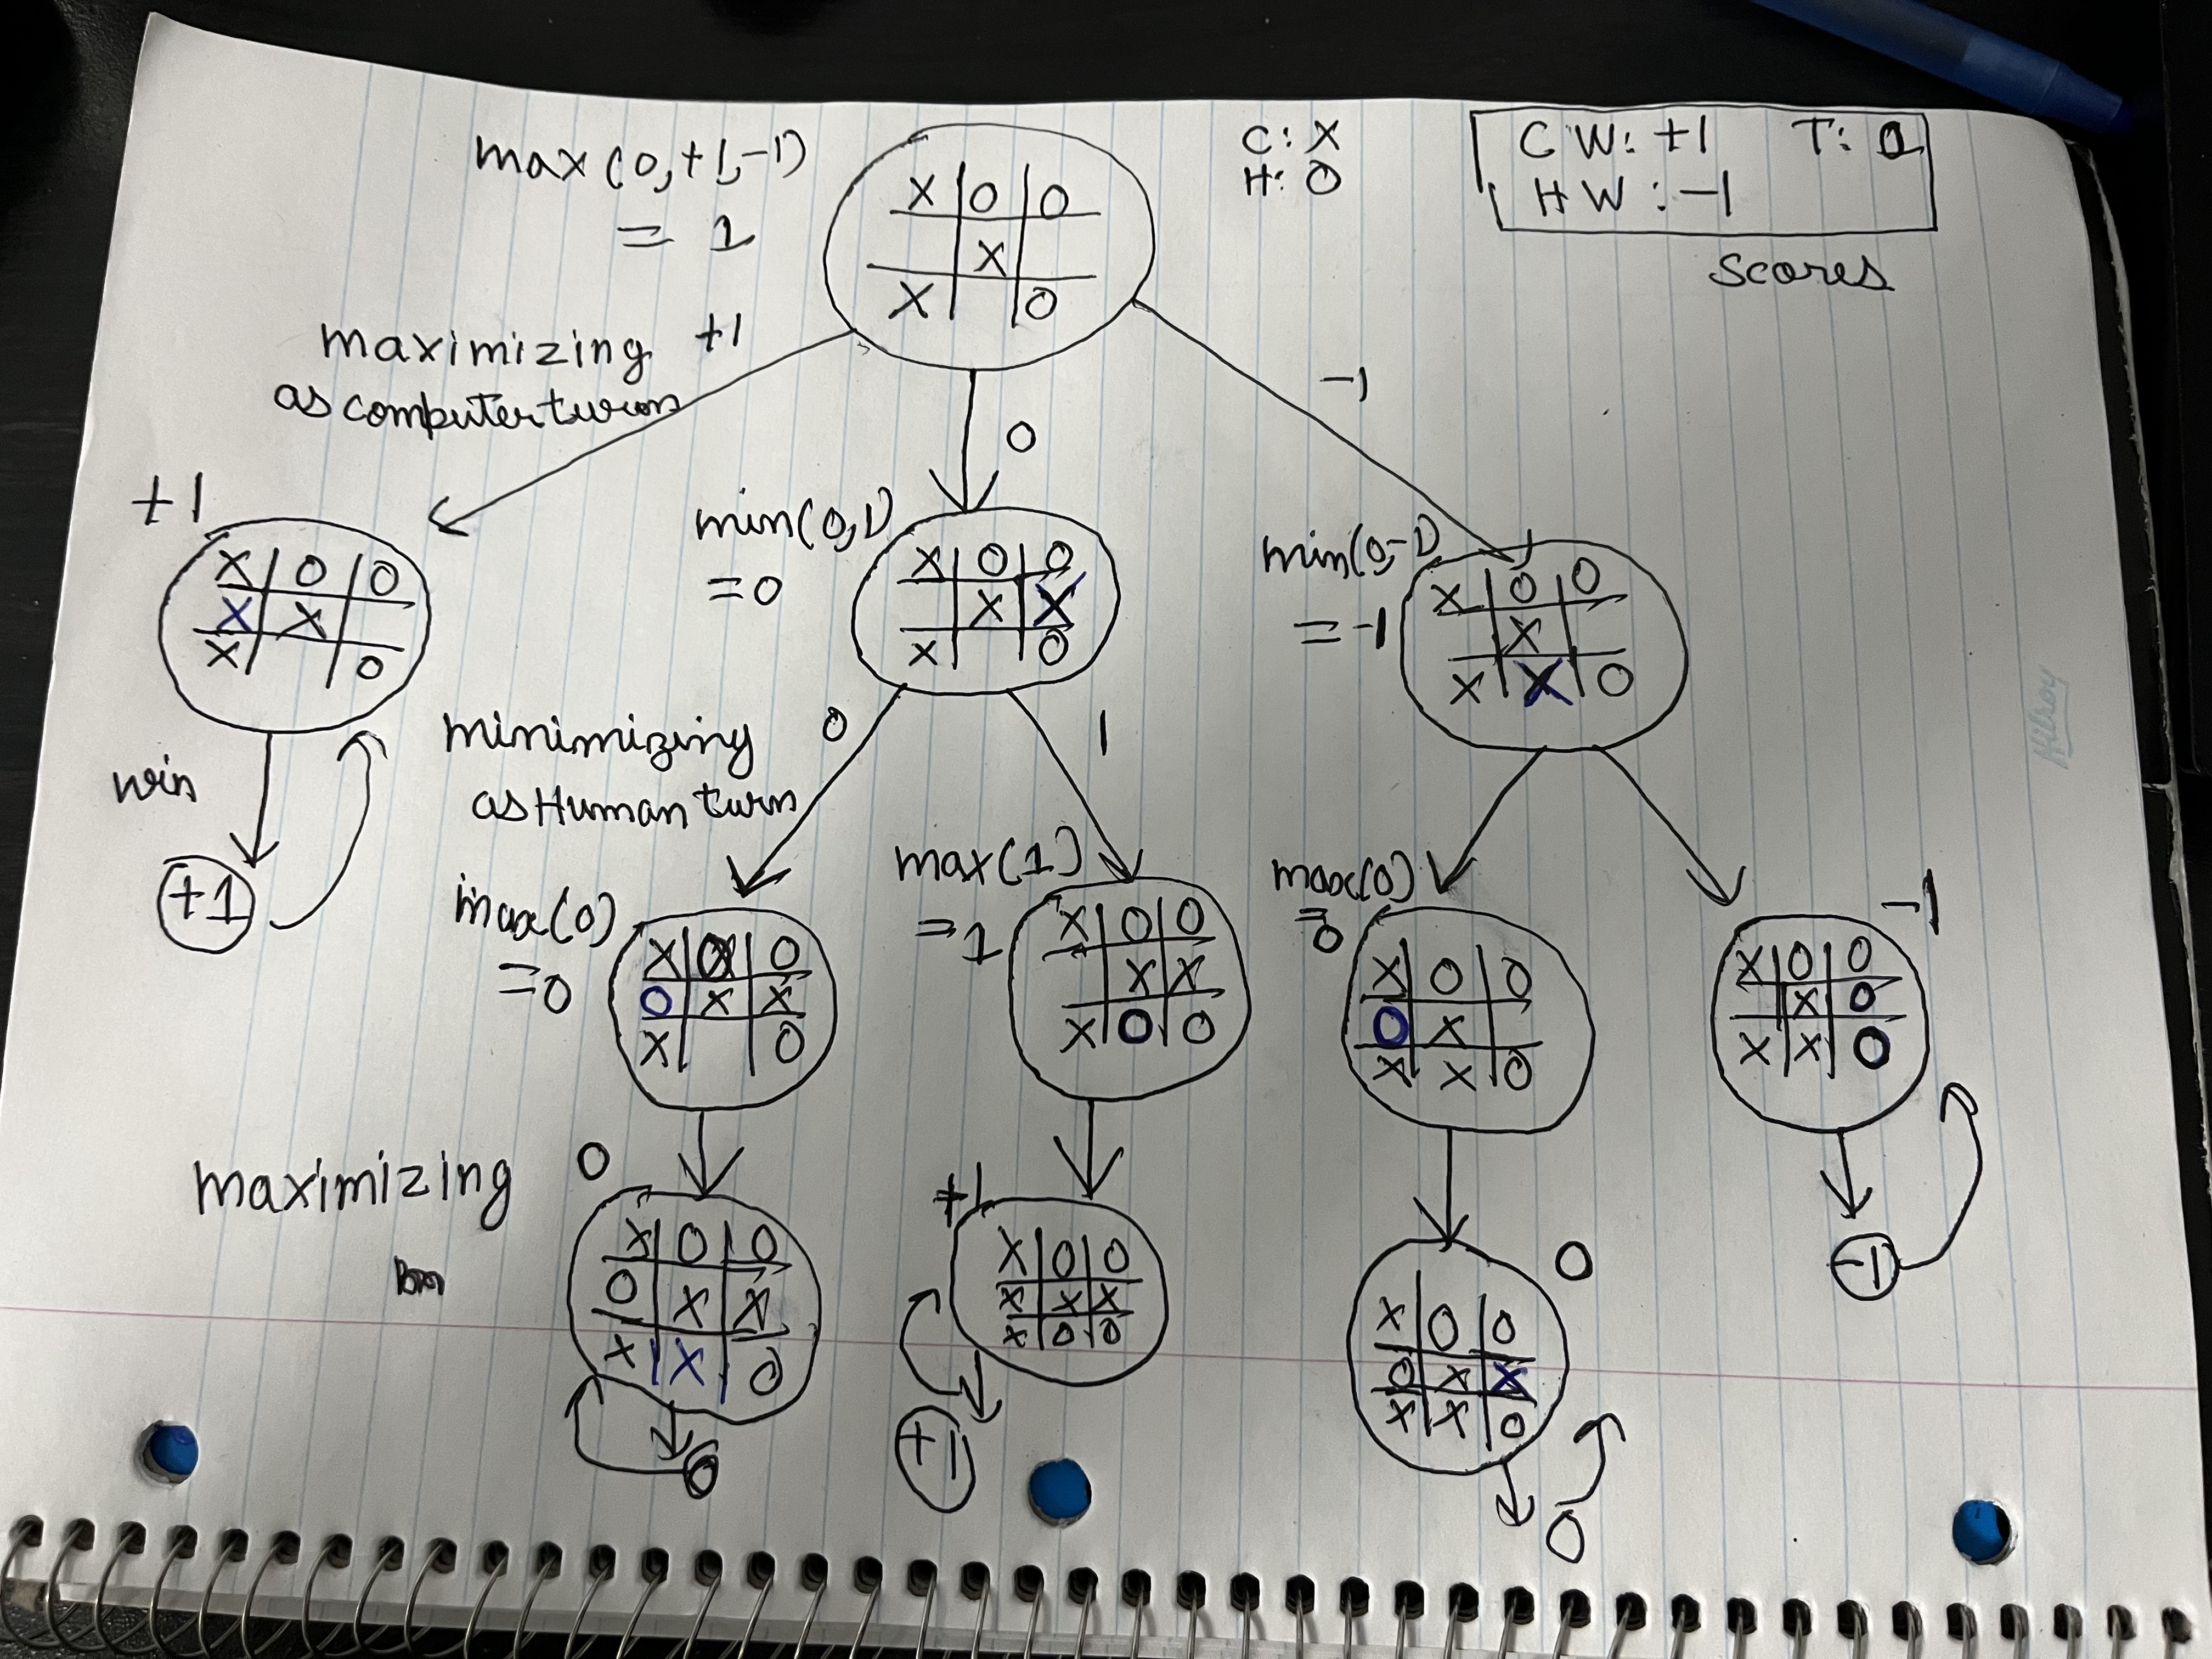 max(0,+1,-1)
= 1
C: X
H: O
CW: +1 T: 0
HW: -1
Scores
X O O
X
X O
maximizing +1
as computer turn
0
-1
+1
X O O
X X
X O
min(0,1)
=0
X O O
X X
X O
min(0,-1)
=-1
X O O
X
X X O
win
+1
minimizing
as Human turn
0
1
max(0)
=0
X O O
O X X
X O
max(1)
=1
X O O
X X
X O O
max(0)
=
0
X O O
O X
X X O
-1
X O O
X O
X X O
Kilroy
maximizing
0
X O O
O X X
X X O
0
+1
X O O
X X X
X O O
+1
0
X O O
O X X
X X O
0
-1